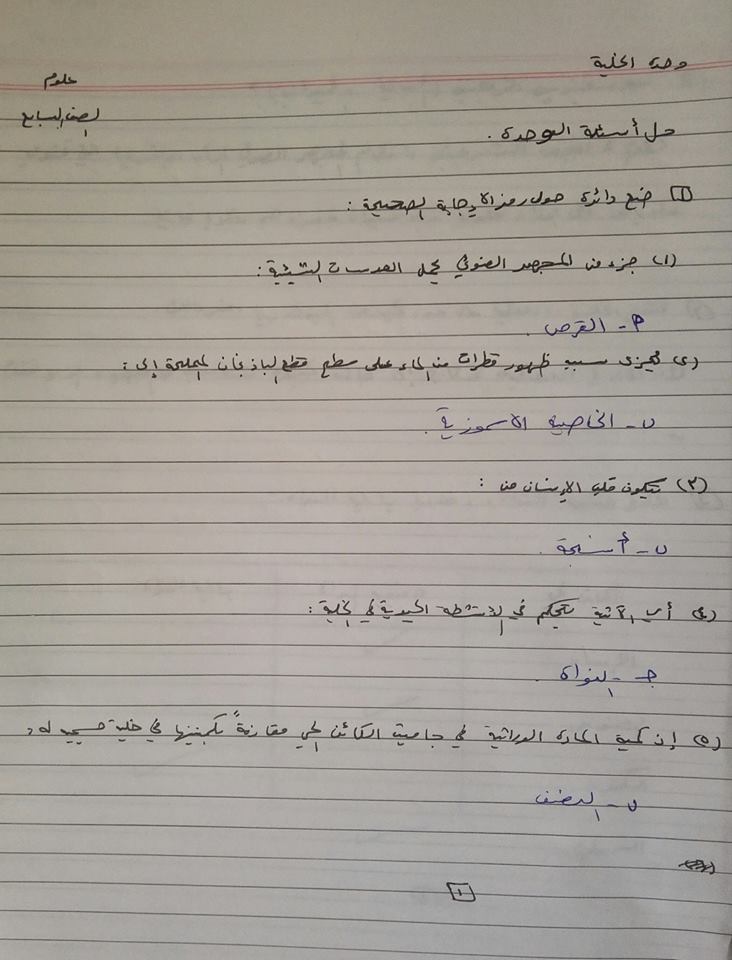 وحدة الخلية
علوم
الصف السابع
حل أسئلة الوحدة .
١ ضع دائرة حول رمز الإجابة الصحيحة :
(١) جزء من المجهر الضوئي يحمل العدسات الشيئية :
P - القرص .
(٢) يُعزى سبب ظهور قطرات من الماء على سطح قطع الباذنجان المملحة إلى :
ب - الخاصية الأسموزية .
(٣) يتكون قلب الإنسان من :
ب - أنسجة .
(٤) أي الآتية يتحكم في الأنشطة الحيوية في الخلية :
جـ - النواة .
(٥) إن كمية المادة الوراثية في جاميت الكائن الحي مقارنةً بكميتها في خلية جسمية له ,
ب - النصف
١